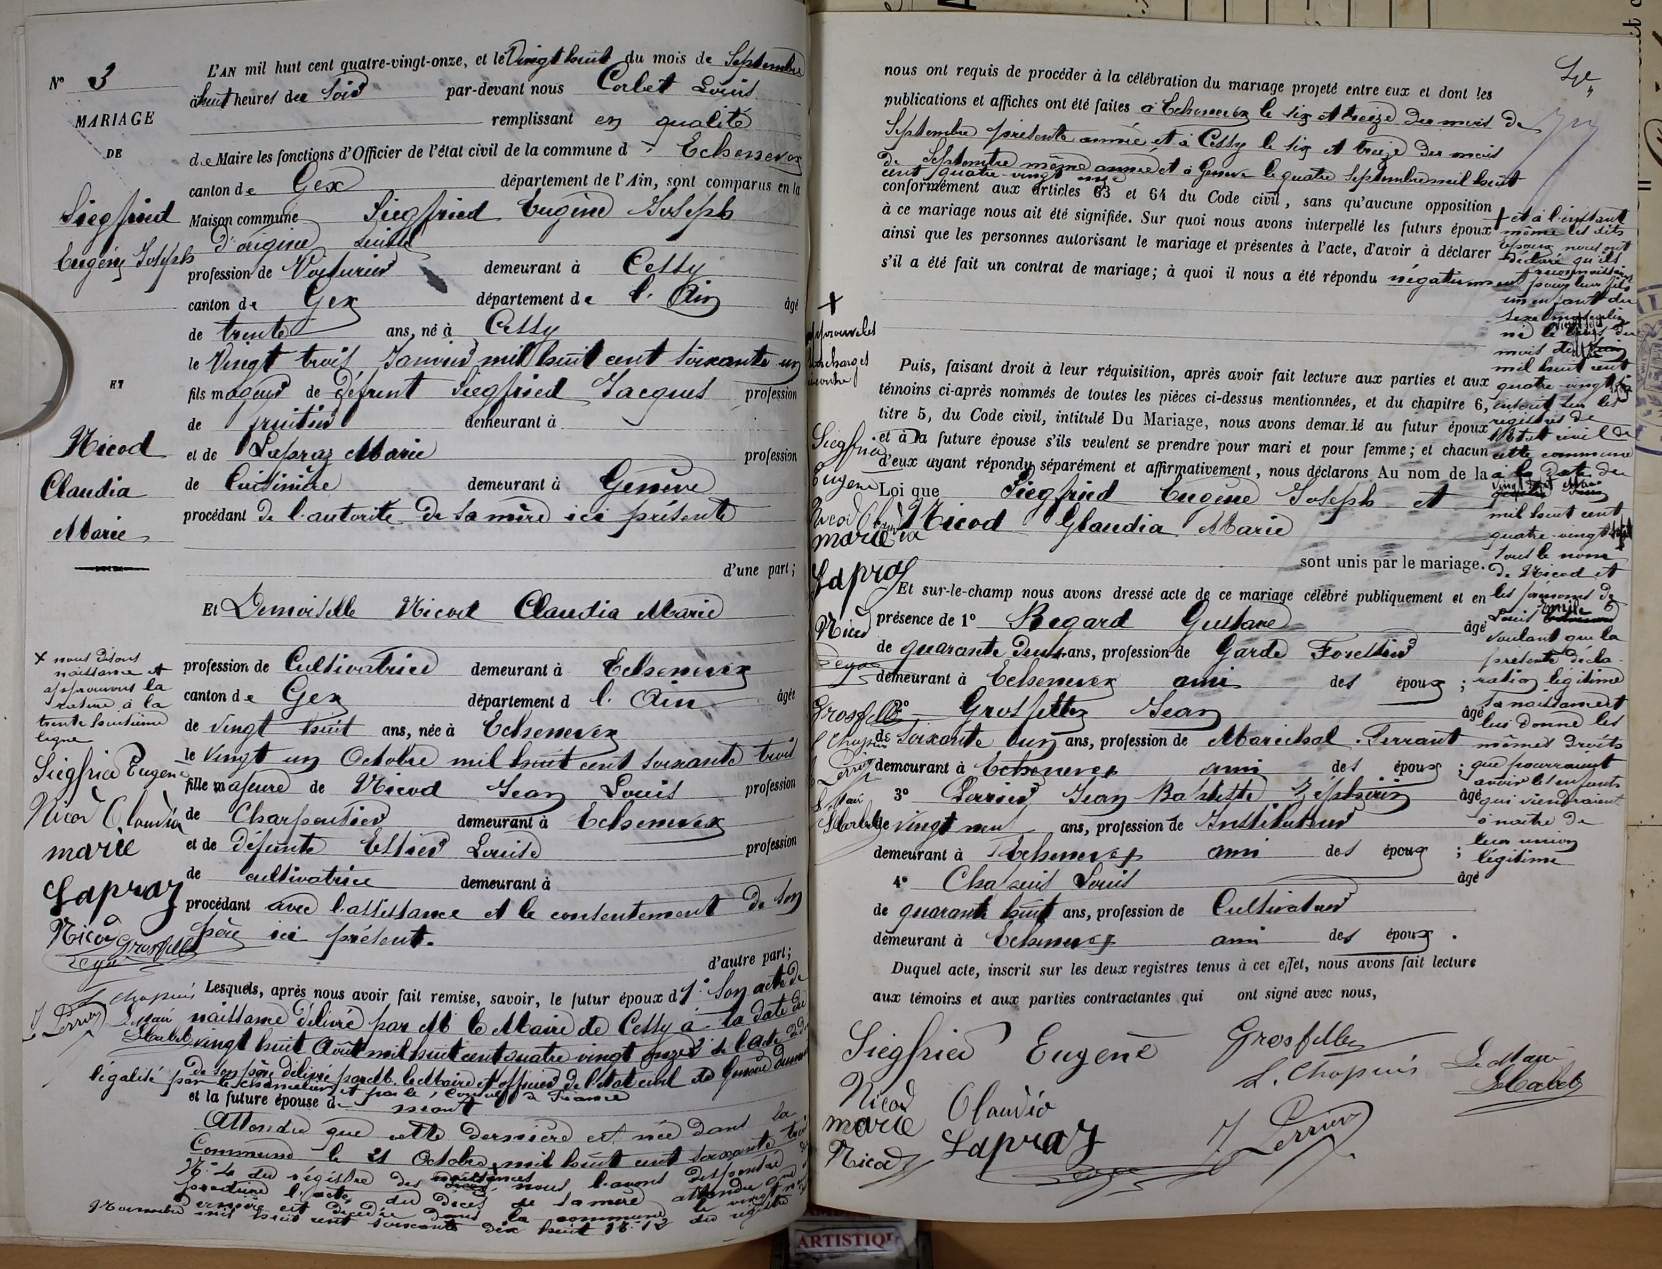 N° 3
MARIAGE
DE
Siegfried
Eugène Joseph
ET
Nicod
Claudia
Marie
L'AN mil huit cent quatre-vingt-onze, et le Vingt huit du mois de Septembre
à huit heures du Soir par-devant nous Corbet Louis
remplissant en qualité
de Maire les fonctions d'Officier de l'état civil de la commune d Echenevex
canton de Gex département de l'Ain, sont comparus en la
Maison commune Siegfried Eugène Joseph
d'origine
profession de Voiturier demeurant à Cessy
canton de Gex département de l'Ain âgé
de trente ans, né à Cessy
le Vingt trois Janvier mil huit cent soixante un
fils majeur de défunt Siegfried Jacques profession
de fruitier demeurant à
et de Lapraz Marie profession
de Cuisinière demeurant à Genève
procédant de l'autorité de sa mère ici présente
d'une part;
Et Demoiselle Nicod Claudia Marie
profession de Cultivatrice demeurant à Echenevex
canton de Gex département d l'Ain âgée
de vingt huit ans, née à Echenevex
le Vingt un Octobre mil huit cent soixante trois
fille majeure de Nicod Jean Louis profession
de Charpentier demeurant à Echenevex
et de défunte Louise profession
de cultivatrice demeurant à
procédant avec l'assistance et le consentement de son
père ici présent.
d'autre part;
Lesquels, après nous avoir fait remise, savoir, le futur époux d 1° Son acte de
naissance délivré par M. le Maire de Cessy à la date du
vingt huit Août mil huit cent quatre vingt onze 2° de l'acte de
de son père délivré par M. le Maire et officier de l'état civil de Genève
légalisé par le chancelier et par le Consul de France
et la future épouse de
Attendu que cette dernière est née dans la
Commune le 21 Octobre mil huit cent soixante trois
du régistre des naissances nous l'avons dispensée de
produire l'acte du décès de sa mère attendu que
dernière est décédée dans la commune le vingt
Novembre mil huit cent soixante dix huit N° 12 du registre
+ nous disons
naissance et
approuvons la
rature à la
trente huitième
ligne
Siegfried Eugène
Nicod Claudia
marie
Lapraz
Nicod
Grosfilley
L. Chapuis
J. Perrier
Le Maire
nous ont requis de procéder à la célébration du mariage projeté entre eux et dont les
publications et affiches ont été faites à Echenevex le six et treize du mois de
Septembre présente année et à Cessy le six et treize du mois
de Septembre même année et à Genève le quatre Septembre mil huit
cent quatre-vingt onze
conformément aux articles 63 et 64 du Code civil, sans qu'aucune opposition
à ce mariage nous ait été signifiée. Sur quoi nous avons interpellé les futurs époux
ainsi que les personnes autorisant le mariage et présentes à l'acte, d'avoir à déclarer
s'il a été fait un contrat de mariage; à quoi il nous a été répondu négativement
Puis, faisant droit à leur réquisition, après avoir fait lecture aux parties et aux
témoins ci-après nommés de toutes les pièces ci-dessus mentionnées, et du chapitre 6,
titre 5, du Code civil, intitulé Du Mariage, nous avons demandé au futur époux
et à la future épouse s'ils veulent se prendre pour mari et pour femme; et chacun
d'eux ayant répondu séparément et affirmativement, nous déclarons Au nom de la
Loi que Siegfried Eugène Joseph et
Nicod Glaudia Marie
sont unis par le mariage.
Et sur-le-champ nous avons dressé acte de ce mariage célébré publiquement et en
présence de 1° Regard Gustave âgé
de quarante deux ans, profession de Garde Forestier
demeurant à Echenevex ami des époux ;
2° Grosfilley Jean âgé
de Soixante un ans, profession de Maréchal Ferrant
demeurant à Echenevex ami des époux ;
3° Perrier Jean Baptiste Zéphirin âgé
de vingt neuf ans, profession de Instituteur
demeurant à Echenevex ami des époux ;
4° Chapuis Louis âgé
de quarante huit ans, profession de Cultivateur
demeurant à Echenevex ami des époux .
Duquel acte, inscrit sur les deux registres tenus à cet effet, nous avons fait lecture
aux témoins et aux parties contractantes qui ont signé avec nous,
Siegfried Eugène
Grosfilley
Nicod Claudia
marie
L. Chapuis
Le Maire
Lapraz
J. Perrier
Nicod
+ et à l'instant
même les dits
époux nous ont
déclaré qu'ils
reconnaissaient
pour leur fils
un enfant du
sexe masculin
né le
mois de
mil huit cent
quatre-vingt
inscrit sur les
registres de
l'Etat civil de
cette commune
à la date du
mil huit cent
quatre-vingt
sous le nom
de Nicod et
les prénoms de
Louis Emile
voulant que la
présente décla-
ration légitime
sa naissance et
lui donne les
mêmes droits
que pourraient
avoir les enfants
qui viendraient
à naître de
leur union
légitime
+
Siegfried
Eugène
Nicod
marie
Lapraz
Nicod
Grosfilley
L. Chapuis
J. Perrier
Le Maire
ARTISTIQUE